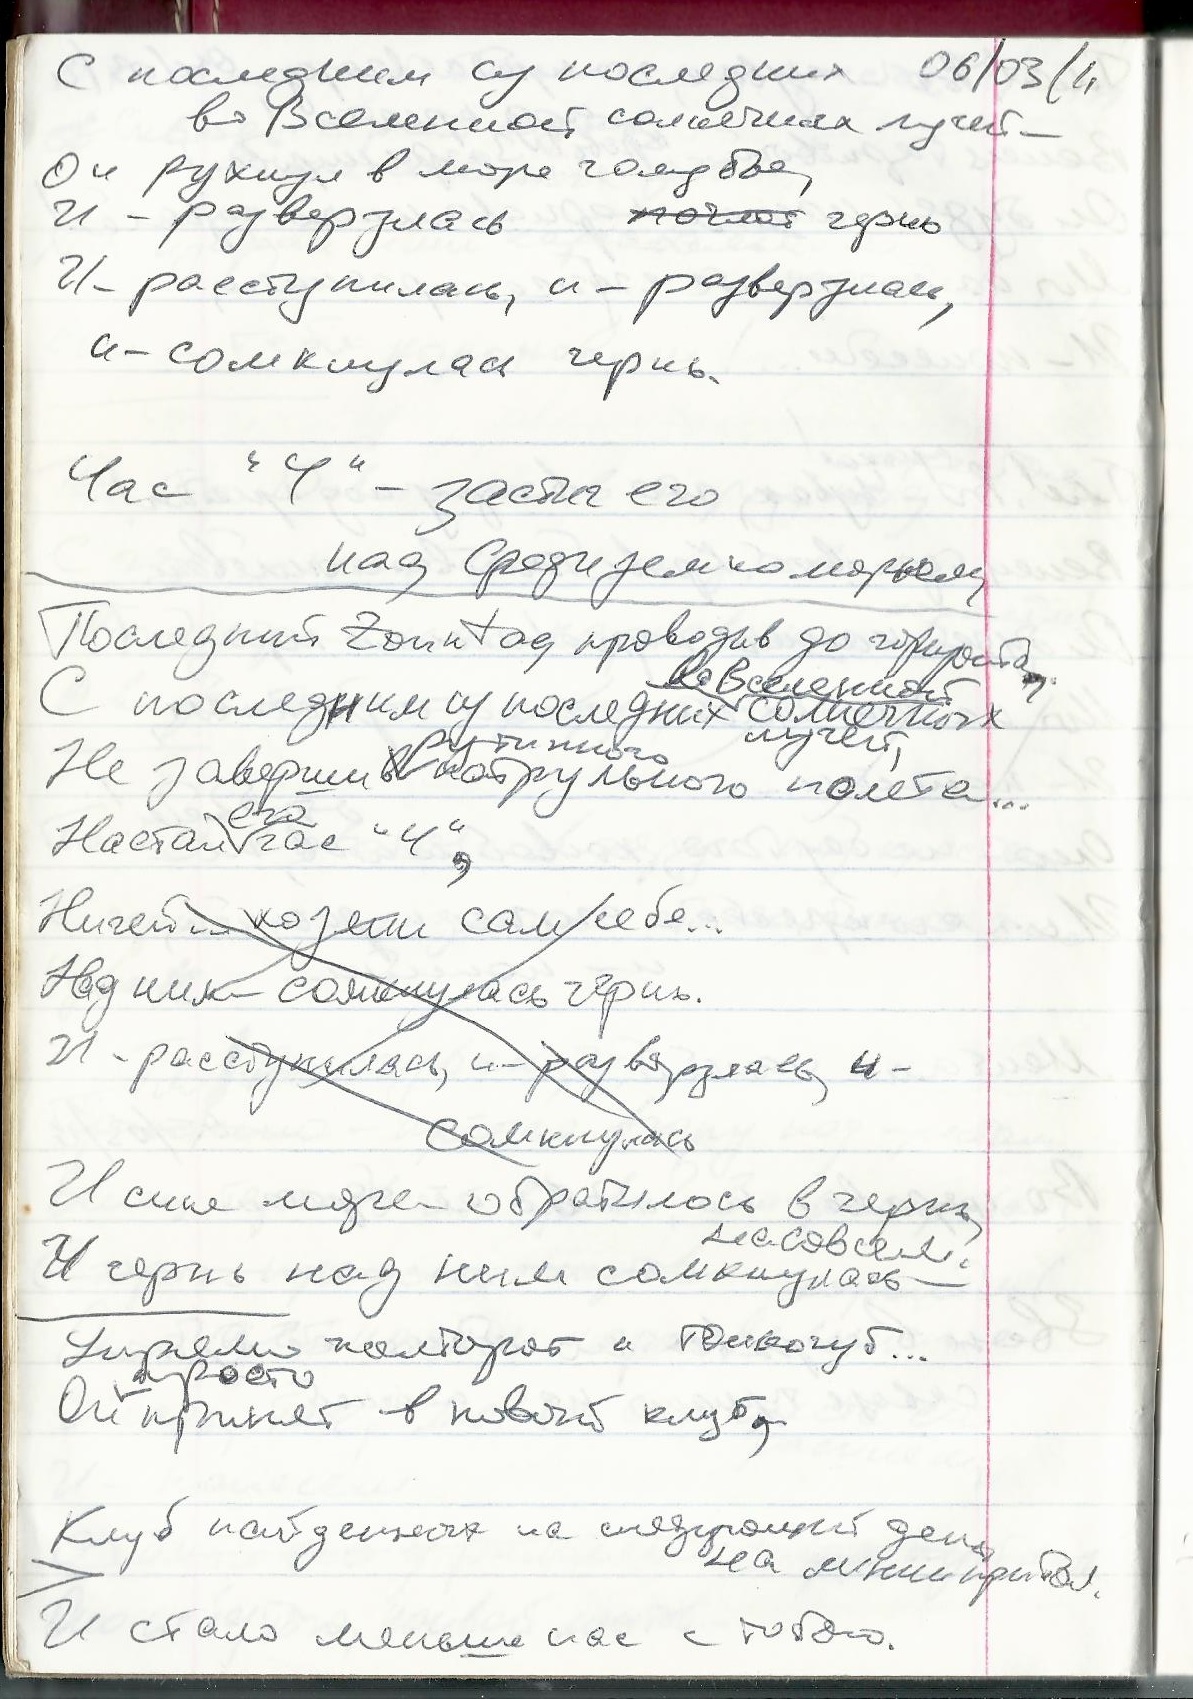 С последним из последних 06/03/11
во Вселенной солнечных лучей –
Он рухнул в море голубое,
И – разверзлась ночной чернь
И – расступилась, и – разверзлась,
и – сомкнулась чернь.
Час "Ч" – застал его
над Средиземноморьем
Последний Zonntag проводив до горизонта,
во Вселенной
С последним из последних солнечных
лучей,
рутинного
Не завершив патрульного полёта...
его
Настал час "Ч",
Ничей козени сам себе...
Над ним – сомкнулась чернь.
И – расступилась, и – разверзлась, и –
сомкнулась
И сине море – обратилось в чернь,
насовсем.
И чернь над ним сомкнулась –
Упрямо полторот и тонкогуб...
просто
Он принят в новый клуб,
Клуб найденных на следующий день
на мини притвал.
И стало меньше нас с тобою.